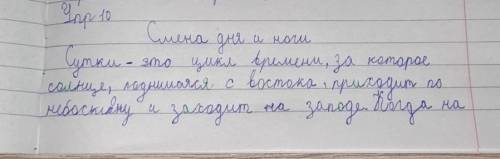 Упр 10
Смена дня и ночи
Сутки - это цикл времени, за которое
солнце, поднимаяся с востока, приходит по
небосклону и заходит на западе. Когда на